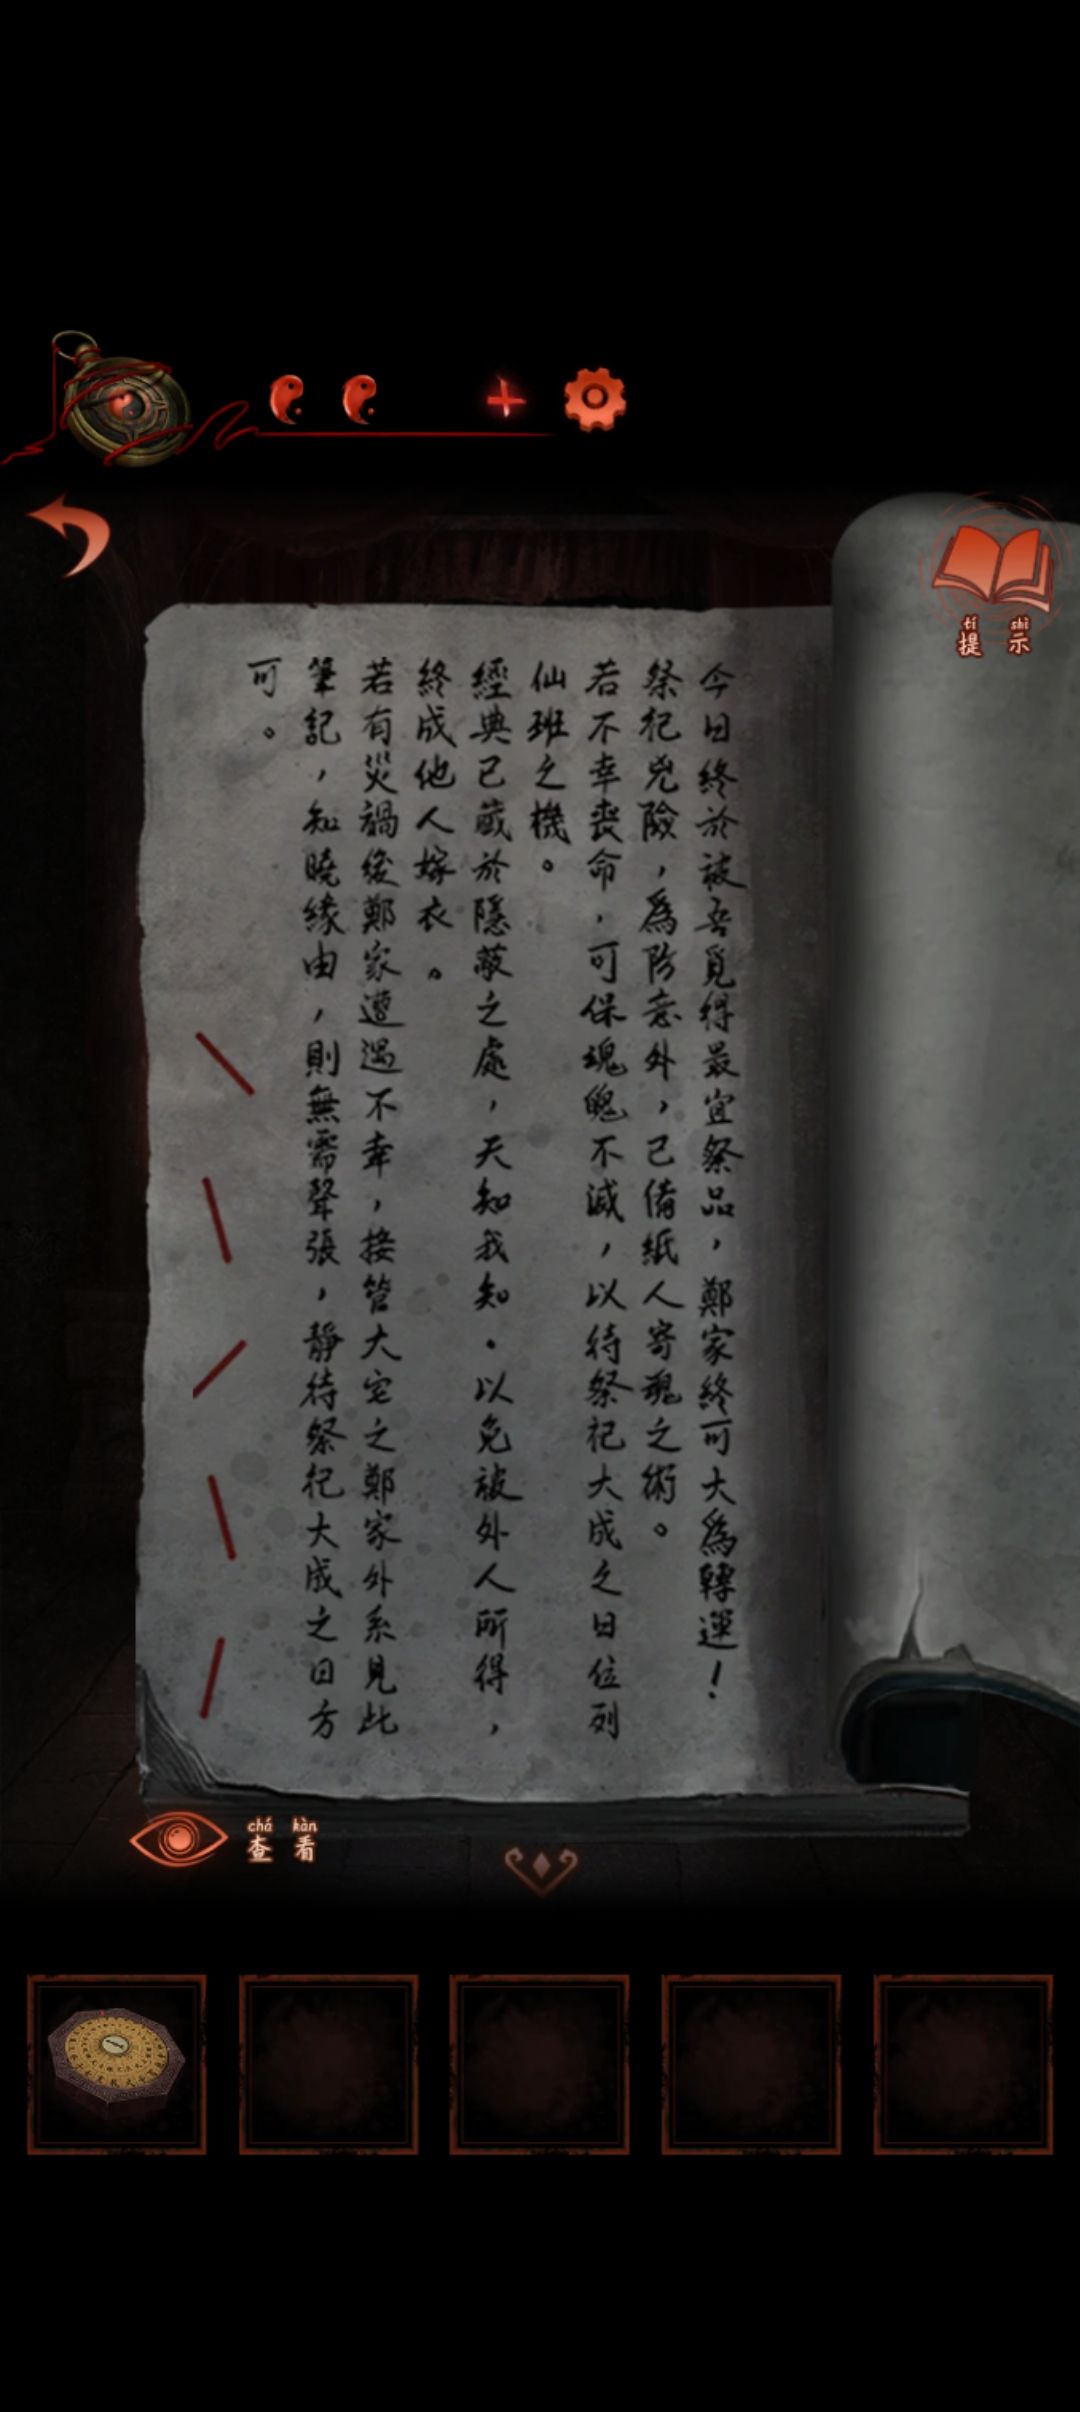 tí shì
提示
今日終於被吾覓得最宜祭品，鄭家終可大為轉運！
祭祀兇險，為防意外，已備紙人寄魂之術。
若不幸喪命，可保魂魄不滅，以待祭祀大成之日位列
仙班之機。
經典已藏於隱蔽之處，天知我知。以免被外人所得，
終成他人嫁衣。
若有災禍後鄭家遭遇不幸，接管大宅之鄭家外系見此
筆記，知曉緣由，則無需聲張，靜待祭祀大成之日方
可。
chá kàn
查看